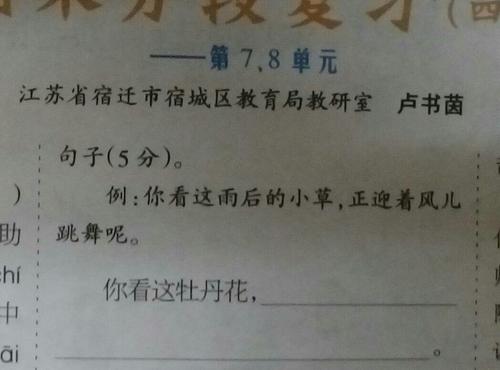 分段复习(四
——第7、8单元
江苏省宿迁市宿城区教育局教研室 卢书茵
句子(5分)。
例:你看这雨后的小草,正迎着风儿
跳舞呢。
你看这牡丹花,
。
)
助
chí
中
āi